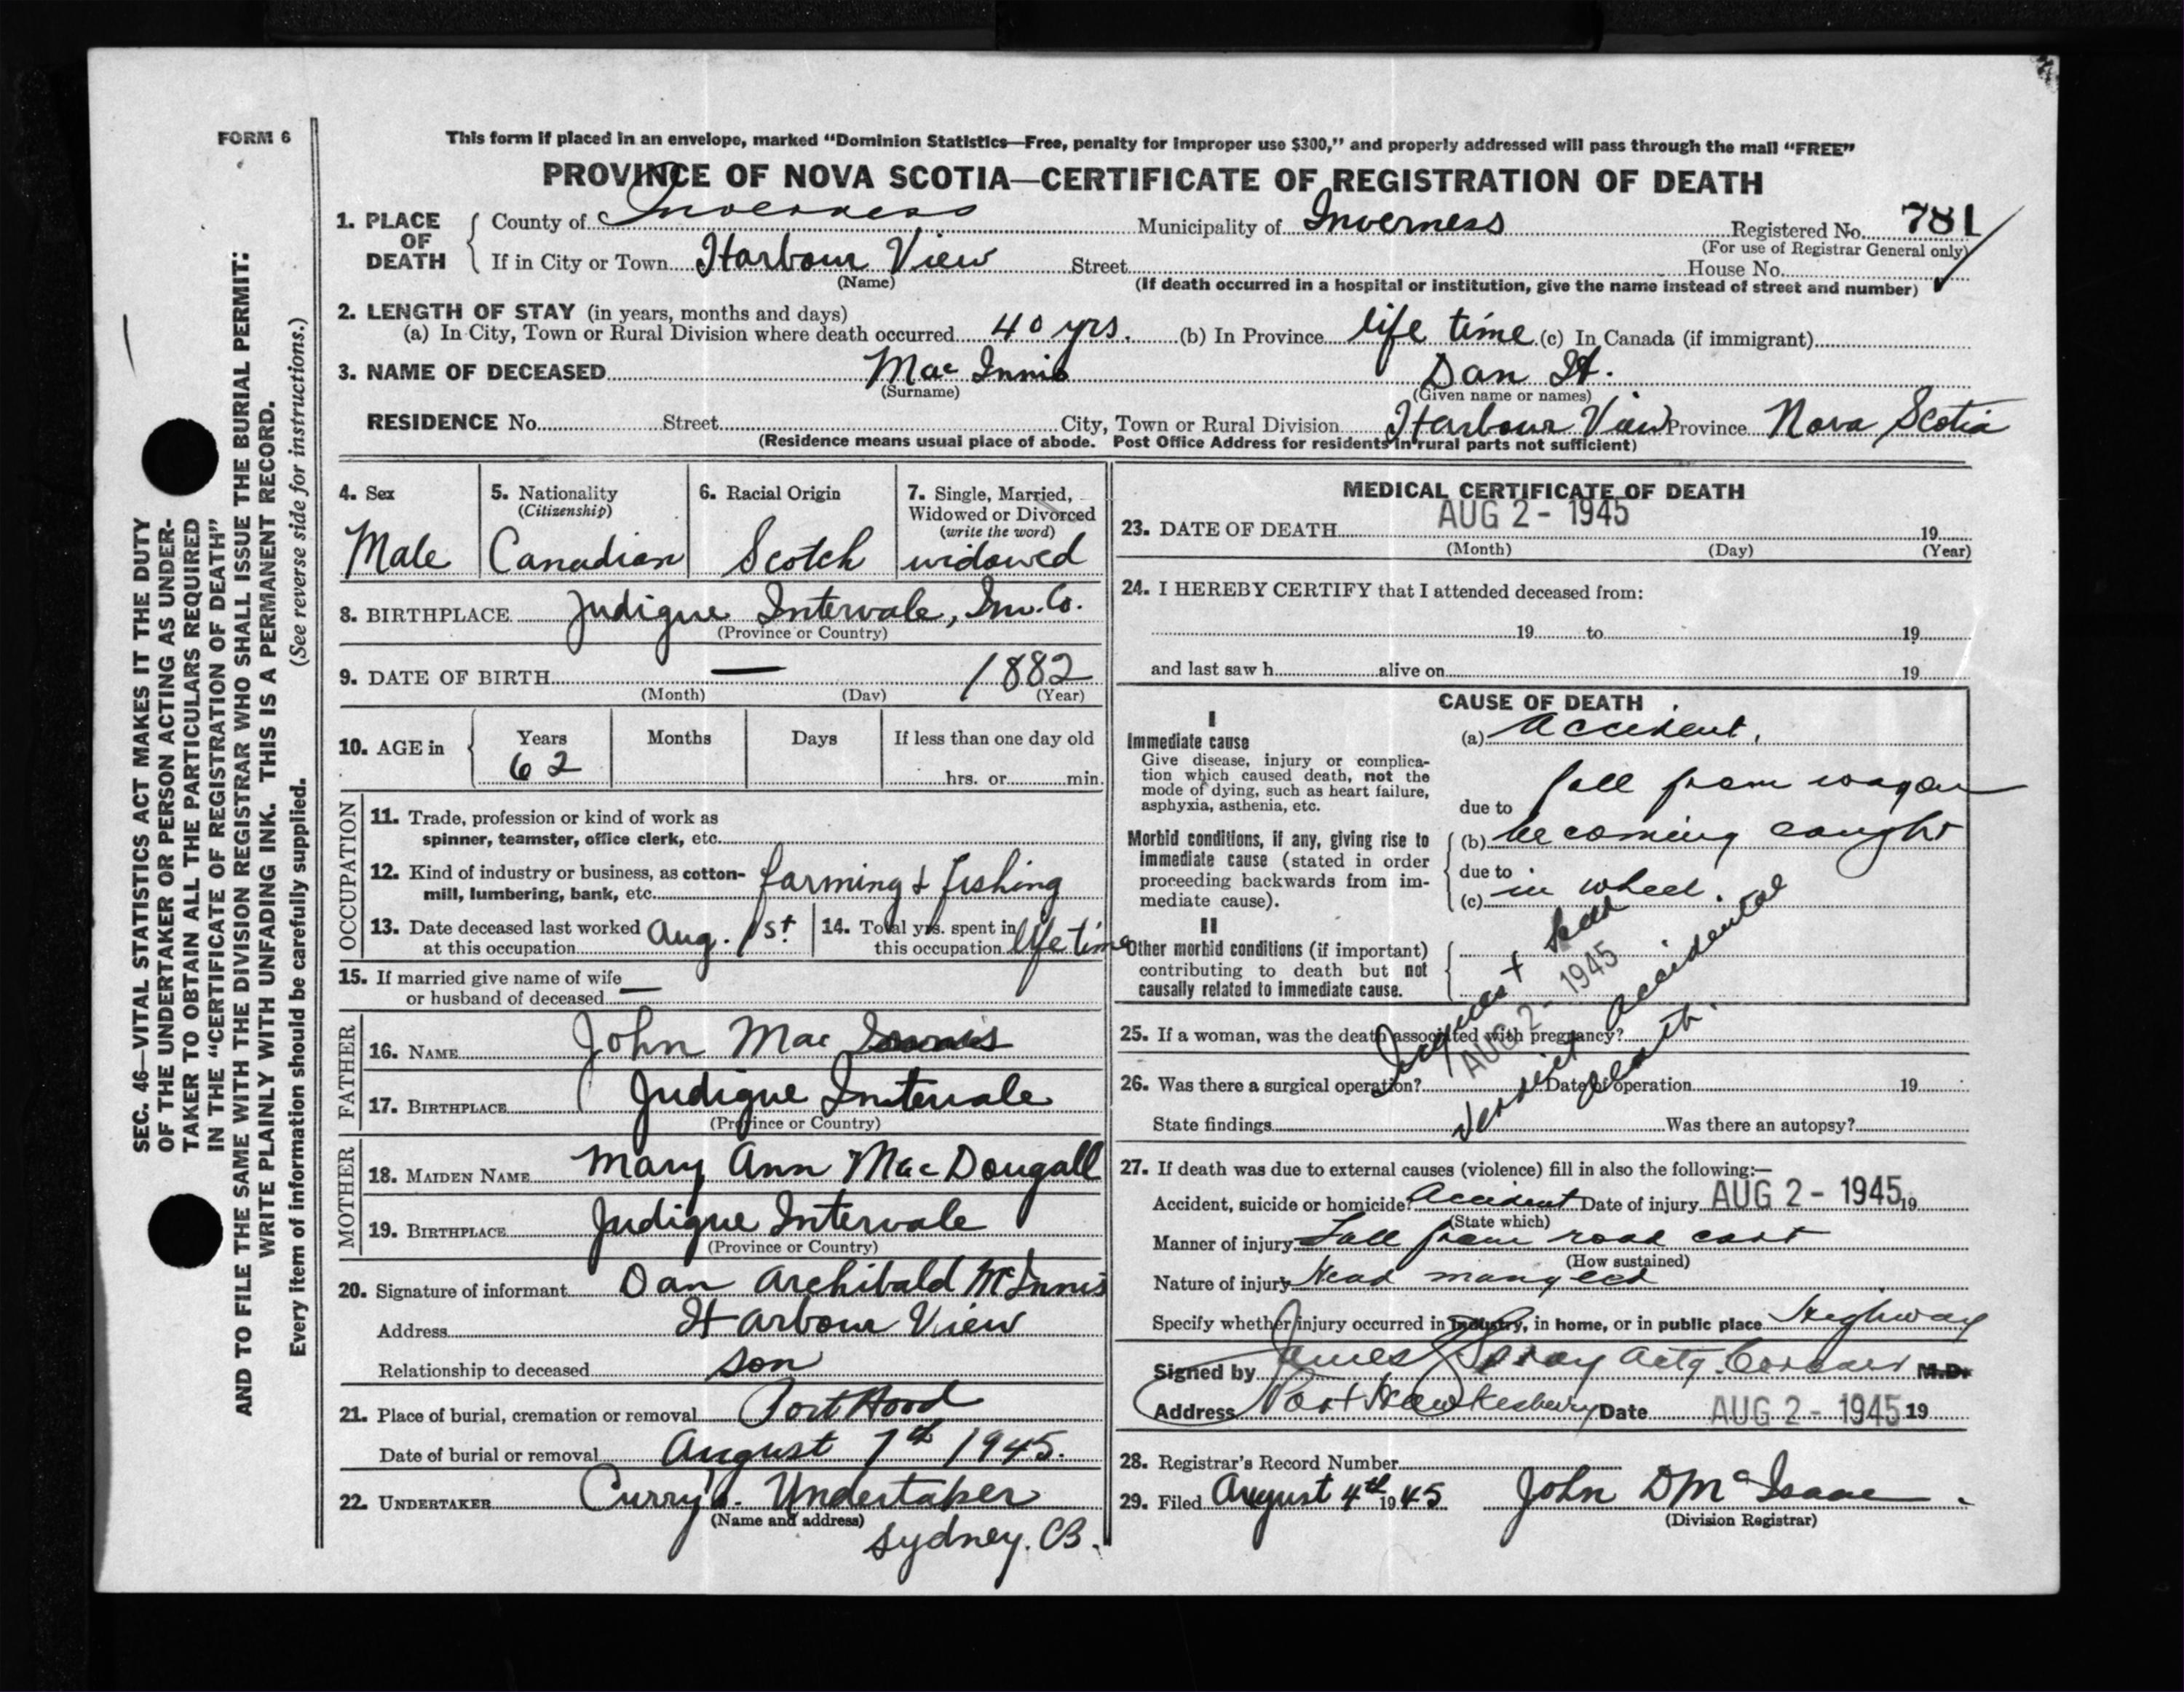 FORM 6
This form if placed in an envelope, marked “Dominion Statistics—Free, penalty for improper use $300,” and properly addressed will pass through the mail “FREE”
PROVINCE OF NOVA SCOTIA—CERTIFICATE OF REGISTRATION OF DEATH
1. PLACE OF DEATH County of Inverness Municipality of Inverness Registered No. 781
(For use of Registrar General only)
If in City or Town Harbour View Street House No.
(Name) (If death occurred in a hospital or institution, give the name instead of street and number)
2. LENGTH OF STAY (in years, months and days)
(a) In City, Town or Rural Division where death occurred 40 yrs. (b) In Province life time (c) In Canada (if immigrant)
3. NAME OF DECEASED Mac Innis Dan H.
(Surname) (Given name or names)
RESIDENCE No. Street City, Town or Rural Division Harbour View Province Nova Scotia
(Residence means usual place of abode. Post Office Address for residents in rural parts not sufficient)
4. Sex
Male
5. Nationality
(Citizenship)
Canadian
6. Racial Origin
Scotch
7. Single, Married,
Widowed or Divorced
(write the word)
widowed
8. BIRTHPLACE Judique Intervale, Inv. Co.
(Province or Country)
9. DATE OF BIRTH — 1882
(Month) (Day) (Year)
10. AGE in Years Months Days If less than one day old
62 hrs. or min.
OCCUPATION
11. Trade, profession or kind of work as
spinner, teamster, office clerk, etc.
12. Kind of industry or business, as cotton-
mill, lumbering, bank, etc. farming & fishing
13. Date deceased last worked
at this occupation Aug. 1st
14. Total yrs. spent in
this occupation life time
15. If married give name of wife
or husband of deceased —
FATHER
16. NAME John Mac Innis
17. BIRTHPLACE Judique Intervale
(Province or Country)
MOTHER
18. MAIDEN NAME Mary Ann MacDougall
19. BIRTHPLACE Judique Intervale
(Province or Country)
20. Signature of informant Dan Archibald McInnis
Address Harbour View
Relationship to deceased son
21. Place of burial, cremation or removal Port Hood
Date of burial or removal August 7th 1945.
22. UNDERTAKER Curry's. Undertaker
(Name and address)
Sydney. CB.
MEDICAL CERTIFICATE OF DEATH
23. DATE OF DEATH AUG 2 - 1945 19
(Month) (Day) (Year)
24. I HEREBY CERTIFY that I attended deceased from:
19 to 19
and last saw h alive on 19
CAUSE OF DEATH
I
Immediate cause
Give disease, injury or complica-
tion which caused death, not the
mode of dying, such as heart failure,
asphyxia, asthenia, etc.
(a) Accident.
due to fall from wagon
Morbid conditions, if any, giving rise to
immediate cause (stated in order
proceeding backwards from im-
mediate cause).
(b) becoming caught
due to
(c) in wheel.
II
Other morbid conditions (if important)
contributing to death but not
causally related to immediate cause.
Inquest held
AUG 2 - 1945
Verdict accidental
death.
25. If a woman, was the death associated with pregnancy?
26. Was there a surgical operation? Date of operation 19
State findings Was there an autopsy?
27. If death was due to external causes (violence) fill in also the following:—
Accident, suicide or homicide? Accident Date of injury AUG 2 - 1945 19
(State which)
Manner of injury Fall from road cart
(How sustained)
Nature of injury Head mangled
Specify whether injury occurred in industry, in home, or in public place Highway
Signed by James Actg. Coroner M.D.
Address Port Hawkesbury Date AUG 2 - 1945 19
28. Registrar's Record Number
29. Filed August 4th 1945 John D McIsaac
(Division Registrar)
SEC. 46—VITAL STATISTICS ACT MAKES IT THE DUTY
OF THE UNDERTAKER OR PERSON ACTING AS UNDER-
TAKER TO OBTAIN ALL THE PARTICULARS REQUIRED
IN THE “CERTIFICATE OF REGISTRATION OF DEATH”
AND TO FILE THE SAME WITH THE DIVISION REGISTRAR WHO SHALL ISSUE THE BURIAL PERMIT:
WRITE PLAINLY WITH UNFADING INK. THIS IS A PERMANENT RECORD.
Every item of information should be carefully supplied. (See reverse side for instructions.)